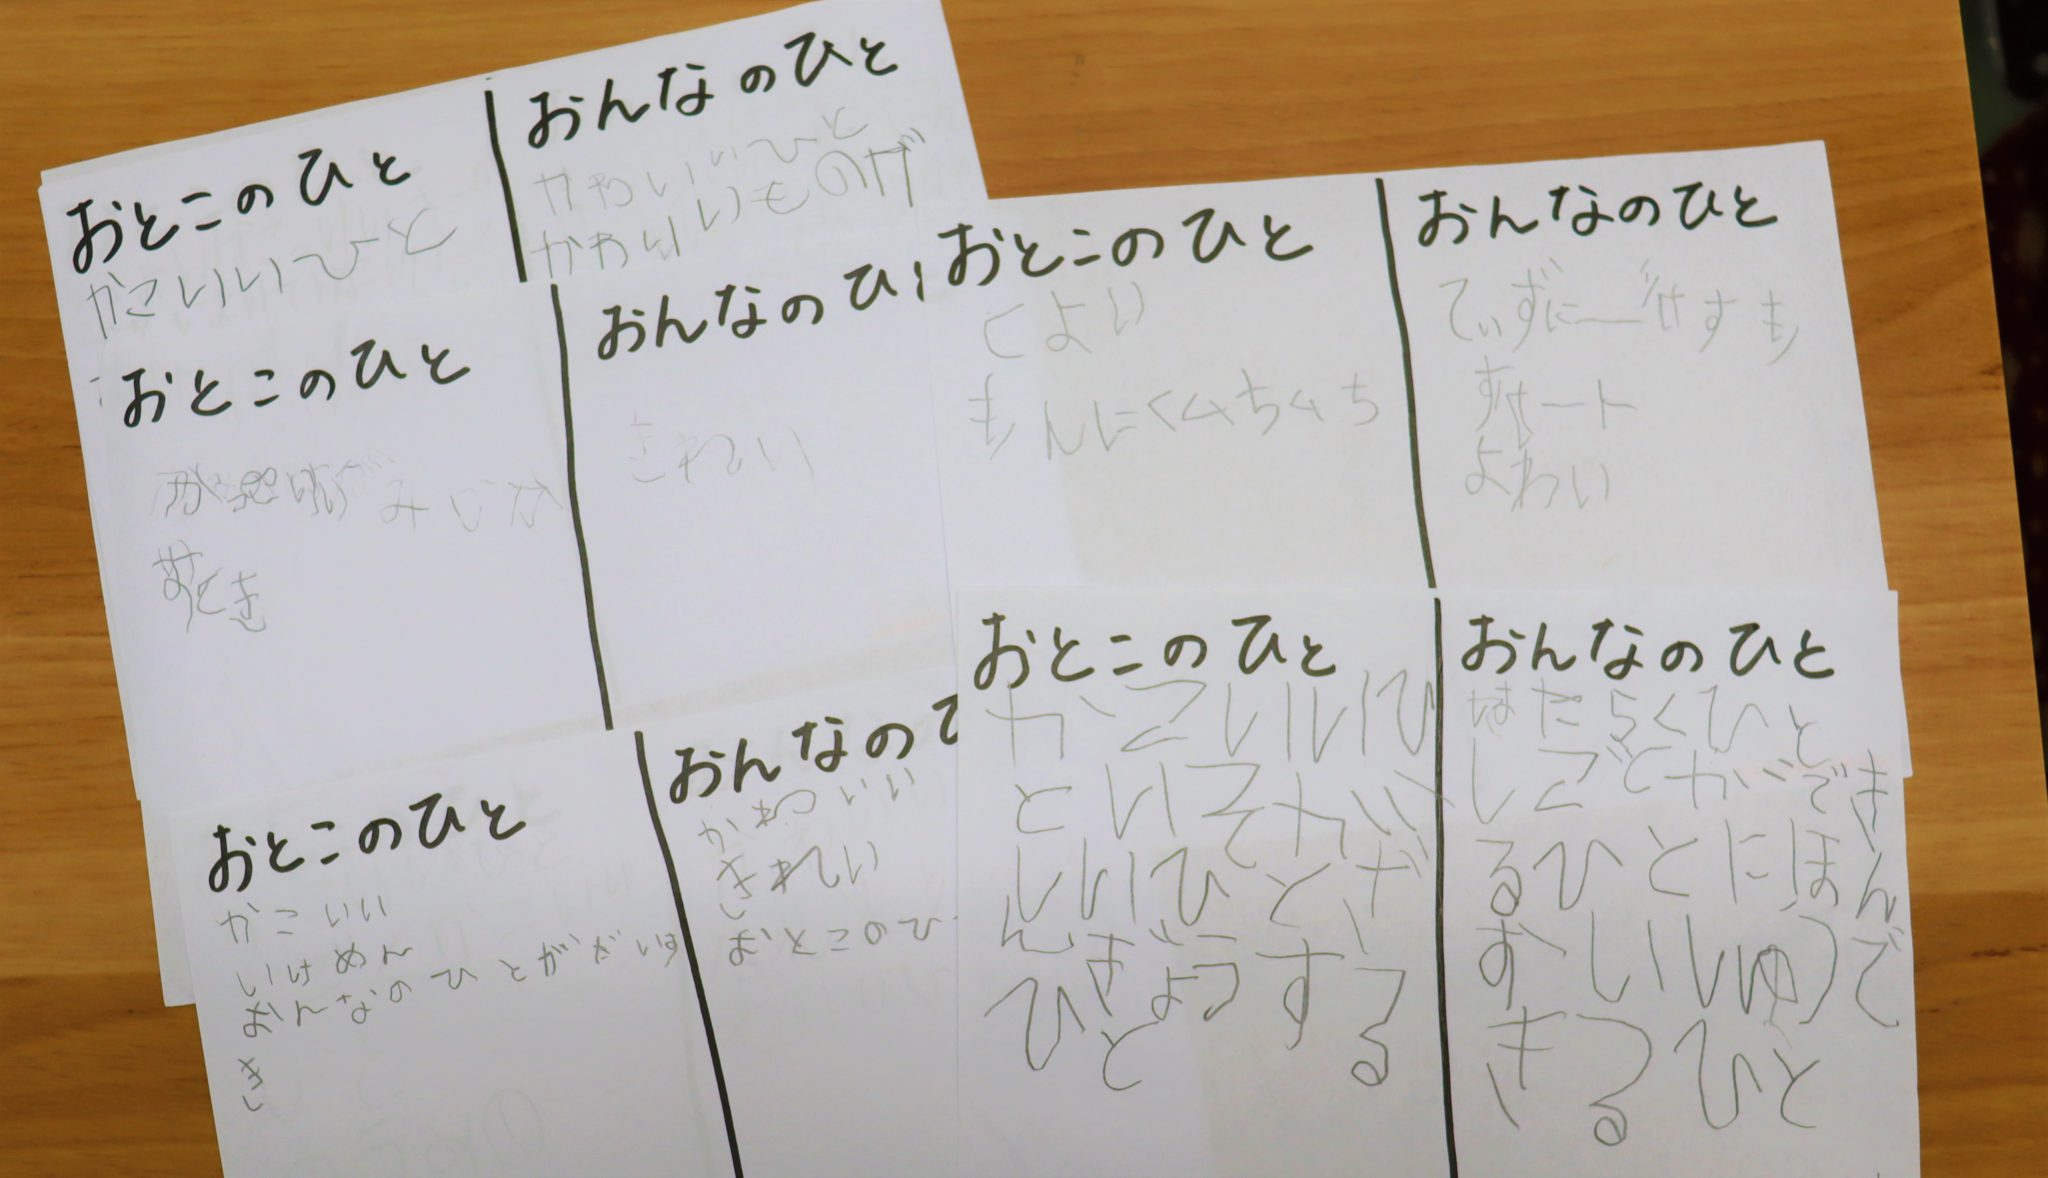 おとこのひと
かこいいひと
おんなのひと
かわいいひと
かわいいものが
おとこのひと
みじか
おんなのひ
きれい
おとこのひと
かこいい
いけめん
おんなのひとがだいす
き
おんなのひ
かわいい
きれい
おとこのひ
おとこのひと
つよい
きんにくムチムチ
おんなのひと
すも
よわい
おとこのひと
かこいいひ
といそがい
しいひとが
んぎょうする
ひと
おんなのひと
はたらくひと
しごとができ
るひとにほん
おいしゅうで
きるひと